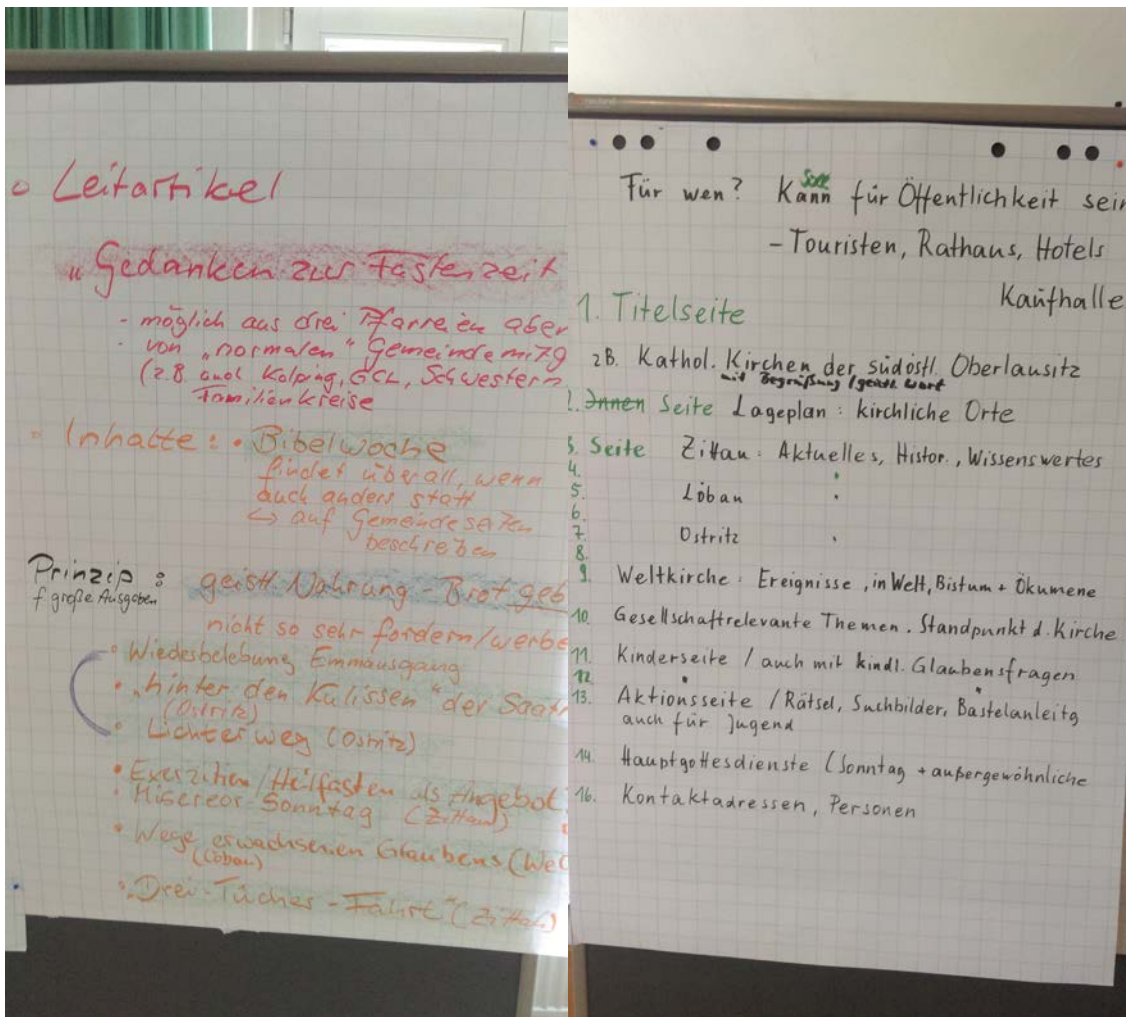 ○ Leitartikel
„Gedanken zur Fastenzeit
- möglich aus drei Pfarreien aber
- von „normalen" Gemeindemitg
(z.B. auch Kolping, GCL, Schwestern
Familienkreise
○ Inhalte: • Bibelwoche
findet überall, wenn
auch anders statt
↳ auf Gemeindeseiten
beschreiben
Prinzip :
f große Ausgaben
geistl. Nahrung - Brot geb
nicht so sehr fordern/werbe
• Wiederbelebung Emmausgang
• „hinter den Kulissen" der Saatr
(Ostritz)
• Lichterweg (Ostritz)
• Exerzitien/Heilfasten als Angebot
• Misereor-Sonntag (Zittau)
• Wege erwachsenen Glaubens (We
(Löbau)
• „Drei-Tücher-Fahrt" (Zittau)
Für wen? Kann Soll für Öffentlichkeit sein
- Touristen, Rathaus, Hotels
Kaufhalle
1. Titelseite
zB. Kathol. Kirchen der südöstl. Oberlausitz
mit Begrüßung / geistl. Wort
2. Innen Seite Lageplan : kirchliche Orte
3. Seite Zittau : Aktuelles, Histor., Wissenswertes
4.
5. Löbau
6.
7. Ostritz
8.
9. Weltkirche : Ereignisse, in Welt, Bistum + Ökumene
10. Gesellschaftrelevante Themen. Standpunkt d. Kirche
11. Kinderseite / auch mit kindl. Glaubensfragen
12.
13. Aktionsseite / Rätsel, Suchbilder, Bastelanleitg
auch für Jugend
14. Hauptgottesdienste (Sonntag + außergewöhnliche
16. Kontaktadressen, Personen